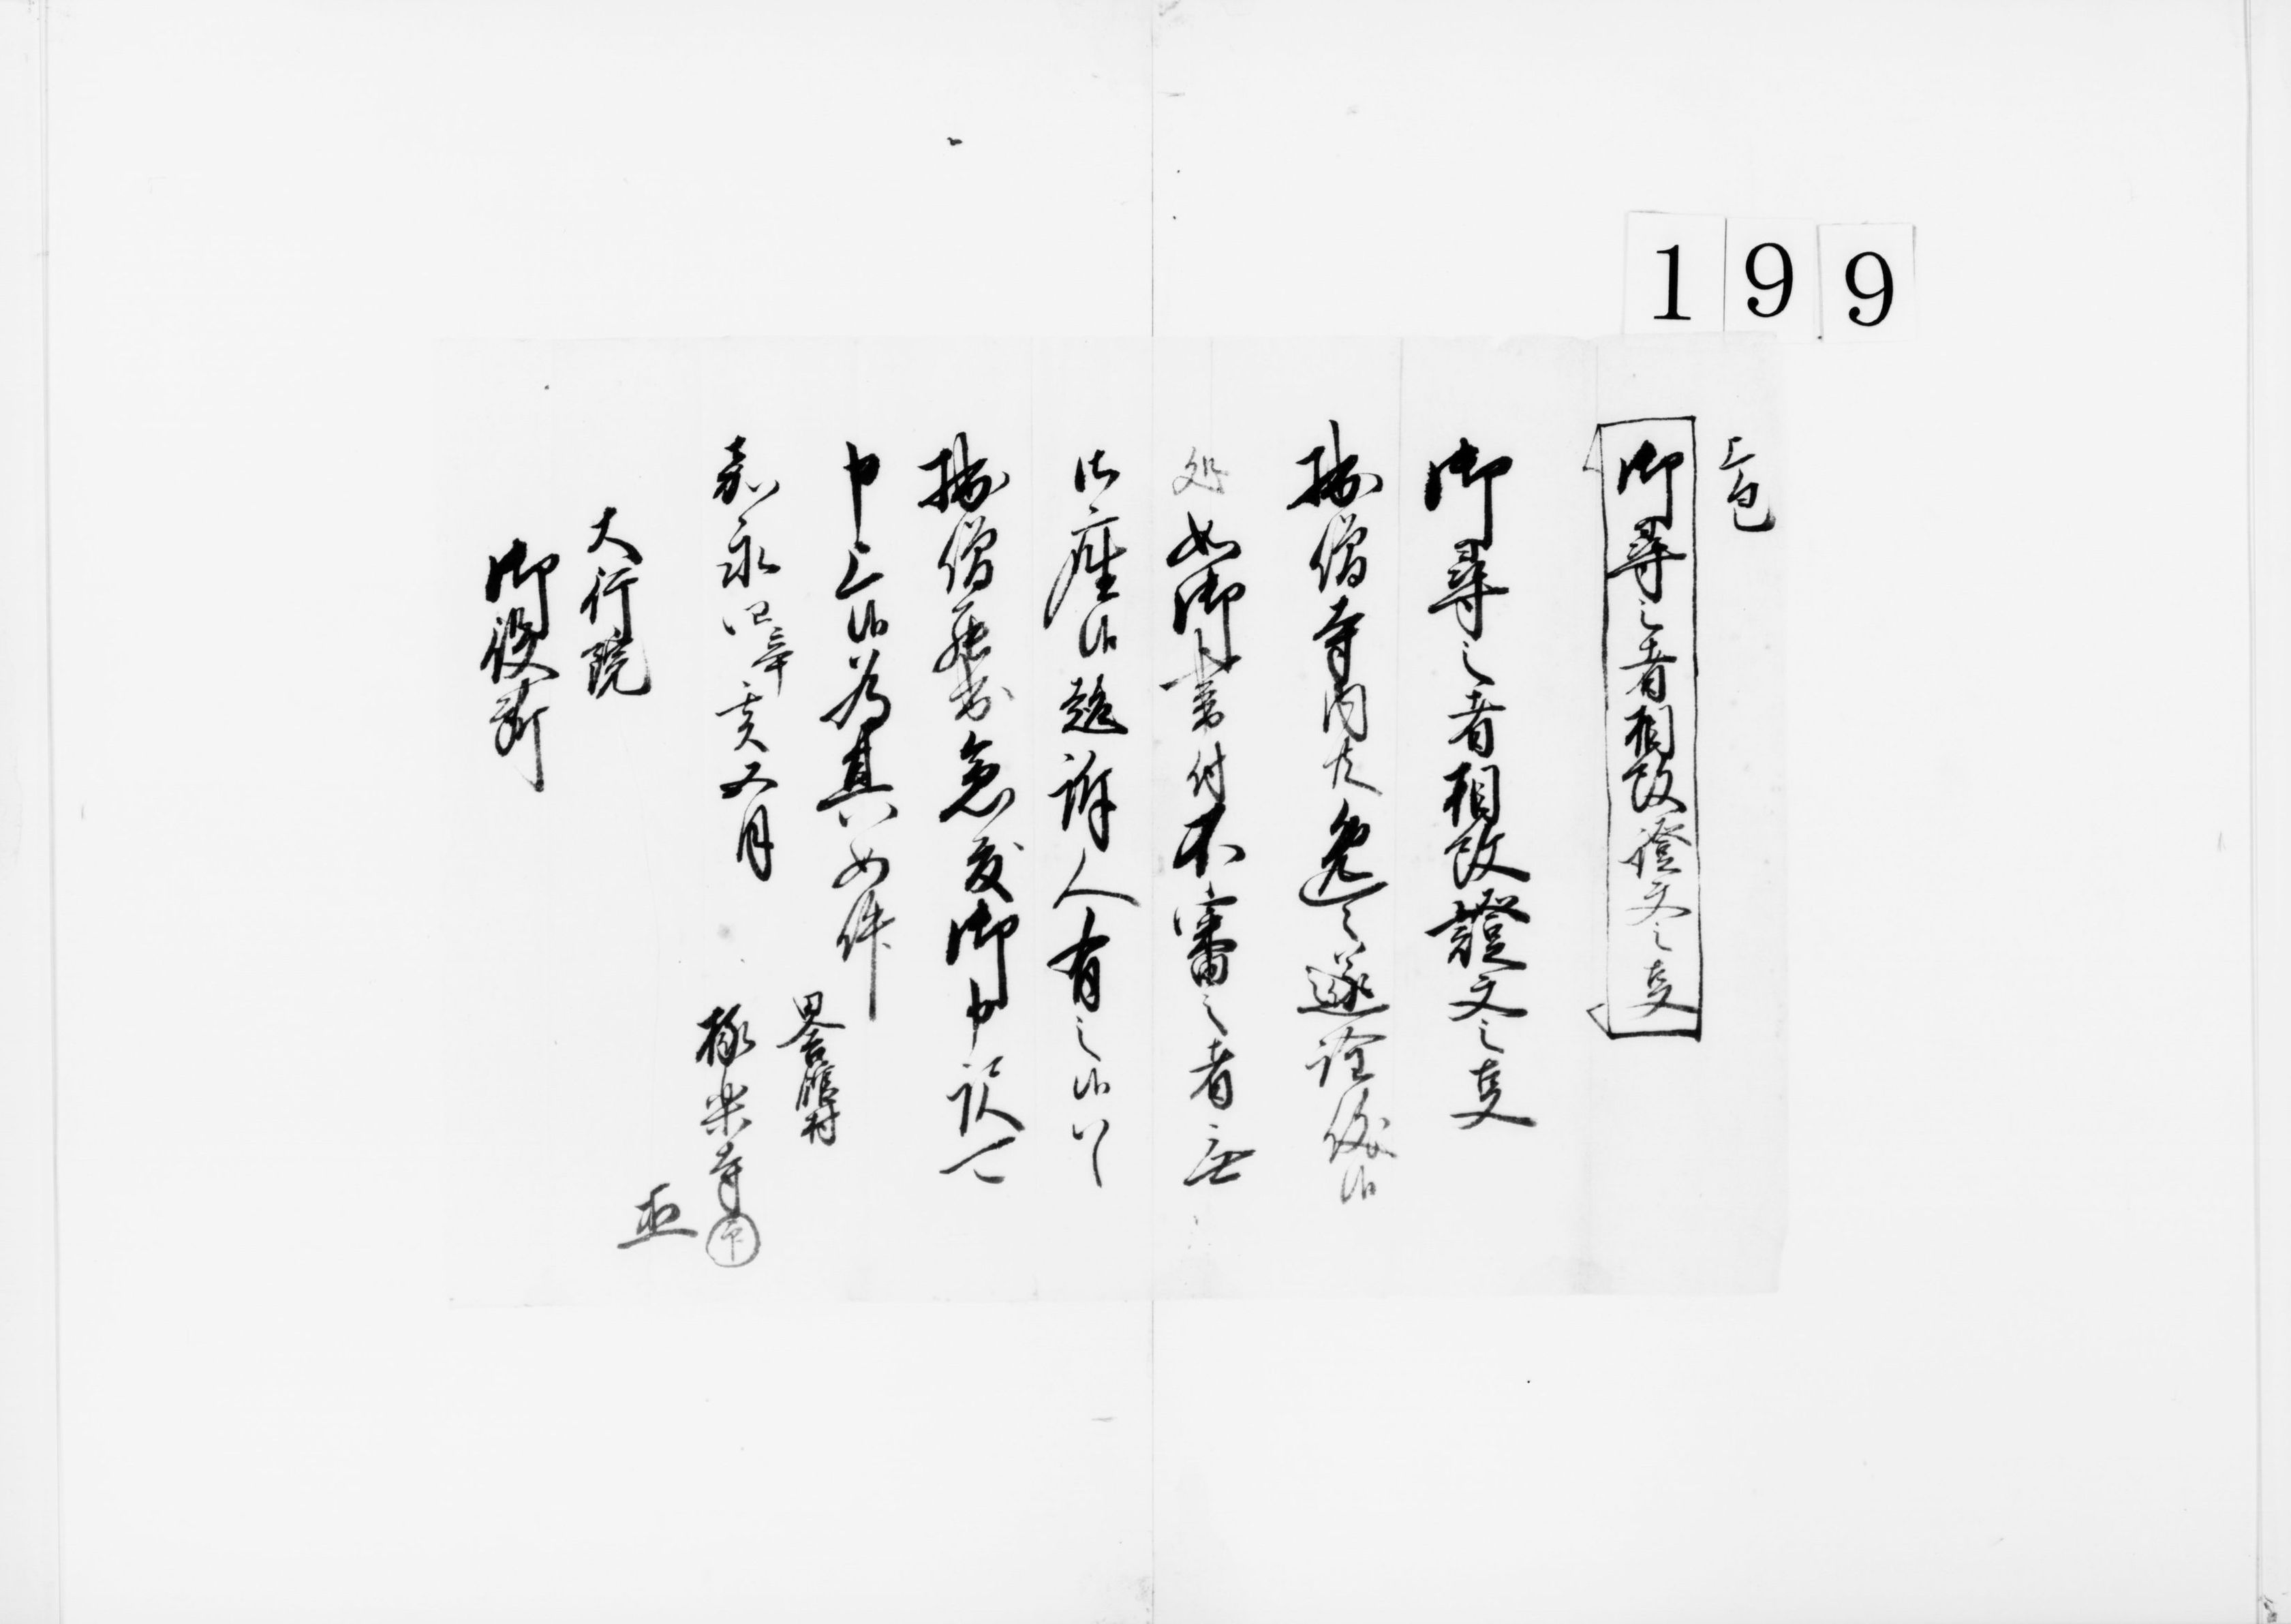 199
上包
御尋之者相改證文之事
御尋之者相改證文之事
拙僧寺内夫迄逸々遂詮儀候
処如御書付不審之者無
御座候越訴人有之候ハヽ
拙僧罷出急度御申訳可
申上候為其如件
嘉永四辛亥五月
田舎館村
極楽寺㊞
大行院
御役所